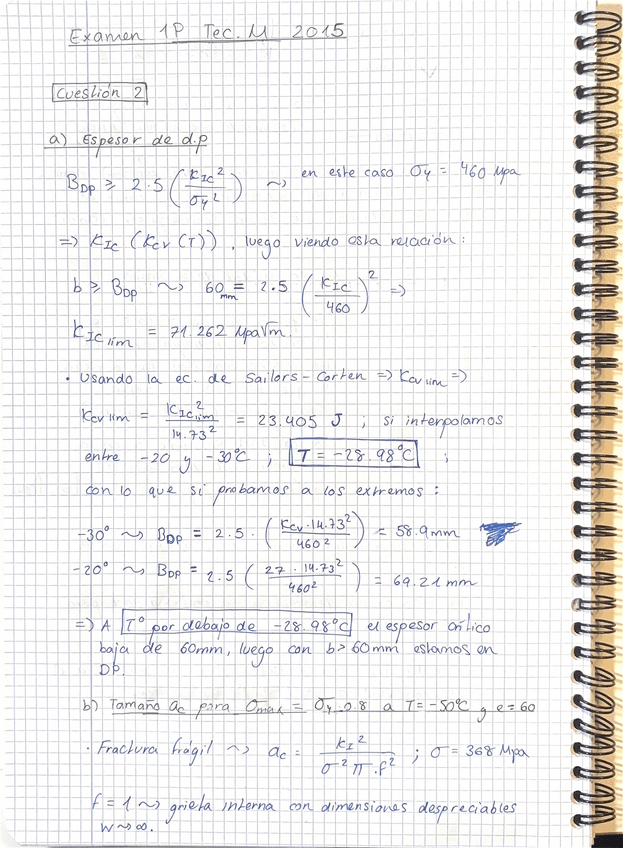 Examen 1P Tec. M 2015
Cuestión 2
a) Espesor de d.p
B_DP ≥ 2.5 (K_IC² / σ_y²) ~> en este caso σ_y = 460 Mpa
=> K_IC (K_CV (T)), luego viendo esta relación:
b ≥ B_DP ~> 60 mm = 2.5 (K_IC / 460)² =>
K_IC lim = 71.262 Mpa√m.
• Usando la ec. de Sailors-Corten => K_CV lim =>
K_CV lim = K_IC lim² / 14.73² = 23.405 J ; si interpolamos
entre -20 y -30°C ; T = -28.98°C ;
con lo que si probamos a los extremos:
-30° ~> B_DP = 2.5 · (K_CV · 14.73² / 460²) = 58.9mm
-20° ~> B_DP = 2.5 (27 · 14.73² / 460²) = 69.21 mm
=> A Tº por debajo de -28.98°C el espesor crítico
baja de 60mm, luego con b > 60mm estamos en
DP.
b) Tamaño a_c para σ_max = σ_y · 0.8 a T = -50°C y e = 60
• Fractura frágil ~> a_c = K_I² / σ² π · f² ; σ = 368 Mpa
f = 1 ~> grieta interna con dimensiones despreciables
W ~> ∞.